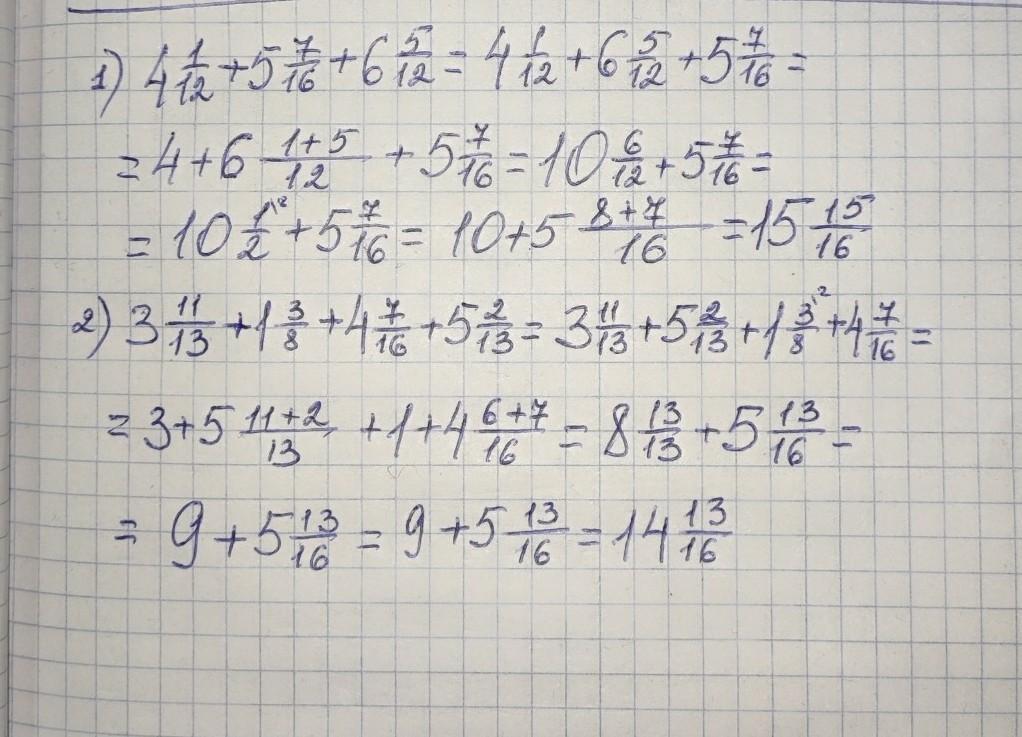 1) 4 1/12 + 5 7/16 + 6 5/12 = 4 1/12 + 6 5/12 + 5 7/16 =
= 4 + 6 (1+5)/12 + 5 7/16 = 10 6/12 + 5 7/16 =
= 10 1\²/2 + 5 7/16 = 10 + 5 (8+7)/16 = 15 15/16
2) 3 11/13 + 1 3/8 + 4 7/16 + 5 2/13 = 3 11/13 + 5 2/13 + 1 3\²/8 + 4 7/16 =
= 3 + 5 (11+2)/13 + 1 + 4 (6+7)/16 = 8 13/13 + 5 13/16 =
= 9 + 5 13/16 = 9 + 5 13/16 = 14 13/16